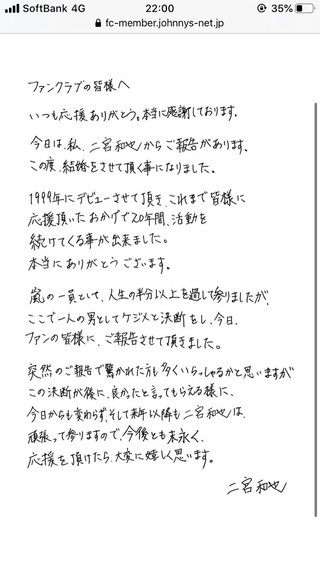 SoftBank 4G 22:00 35%
fc-member.johnnys-net.jp
ファンクラブの皆様へ
いつも応援ありがとう。本当に感謝しております。
今日は、私、二宮和也からご報告があります。
この度、結婚をさせて頂く事になりました。
1999年にデビューさせて頂き、これまで皆様に
応援頂いたおかげで20年間、活動を
続けてくる事が出来ました。
本当にありがとうございます。
嵐の一員として、人生の半分以上を過して参りましたが、
ここで一人の男としてケジメと決断をし、今日、
ファンの皆様に、ご報告させて頂きました。
突然のご報告で驚かれた方も多くいらっしゃるかと思いますが
この決断が後に、良かったと言ってもらえる様に、
今日からも変わらず、そして来年以降も二宮和也は、
頑張って参りますので、今後とも末永く、
応援を頂けたら、大変に嬉しく思います。
二宮和也